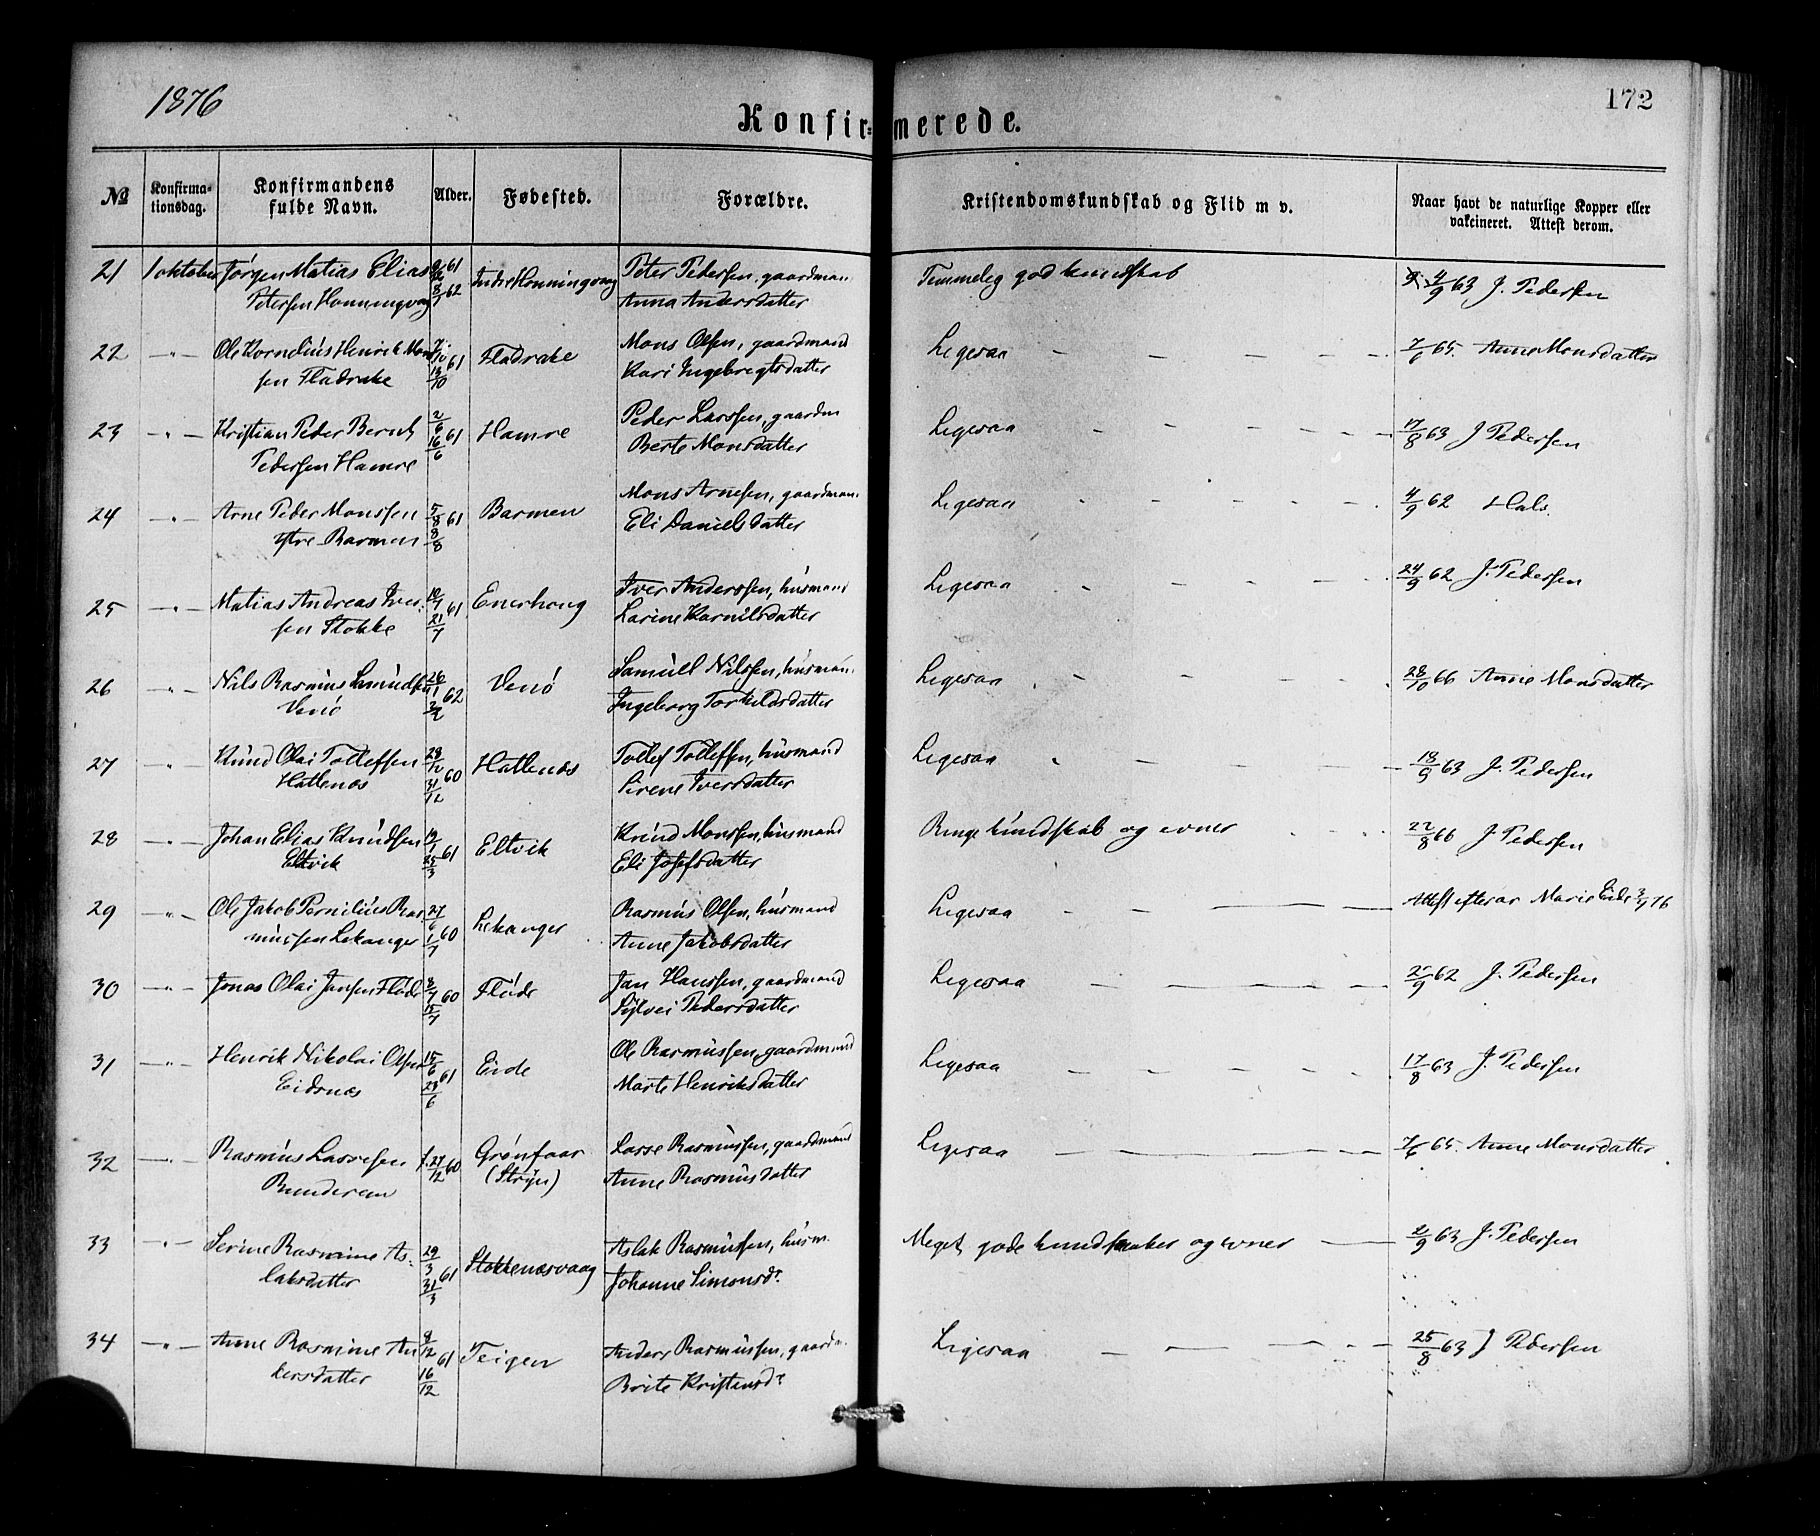 1876
172
Konfir=merede.
№ Konfirma=tionsdag. Konfirmandens fulde Navn. Alder. Fødested. Forældre. Kristendomskundskab og Flid m v. Naar havt de naturlige Kopper eller vakcineret. Attest derom.
21 1 oktober Jørgen Matias Elias 61 Indre Honningvaag Peter Pedersen, gaardman Temmeleg god kundskab 4/9 63 J. Pedersen
Petersen Honningvaag 8/1 62 Anna Andersdatter
22 -"- Ole Kornelius Henrik Mon 7/10 61 Fladrake Mons Olsen, gaardmand Ligesaa 7/6 65. Anne Monsdatter
sen Fladrake 13/10 Kari Ingebregtsdatter
23 -"- Kristian Peder Bernt 2/6 61 Hamre Peder Larssen, gaardm Ligesaa 17/8 63 J Pedersen
Pedersen Hamre 16/6 Berte Monsdatter
24 -"- Arne Peder Monssen 5/8 61 Barmen Mons Arnesen, gaardman. Ligesaa 4/9 62 Hals.
ytre Barmen 8/8 Eli Danielsdatter
25 -"- Matias Andreas Iver- 61 Enerhaug Iver Anderssen, husmand Ligesaa 24/9 62 J. Pedersen
sen Stokke 21/7 Larine Karnilsdatter
26 -"- Nils Rasmus Samuelsen 26/1 62 Venø Samuel Nilssen, husman. Ligesaa 28/10 66 Anne Monsdatter
Venø 2/2 Ingeborg Torkildsdatter
27 -"- Knud Olai Tollefsen 28/12 60 Hatlenæs Tollef Tollefsen, husmand Ligesaa 18/9 63 J. Pedersen
Hatlenæs 31/12 Sirene Iversdatter
28 -"- Johan Elias Knudsen 19/1 61 Eltvik Knud Monssen, husmand Ringe kundskab og evner 22/8 66 J. Pedersen
Eltvik 25/3 Eli Josefsdatter
29 -"- Ole Jakob Pernilius Ras 27/6 60 Lekanger Rasmus Olsen, husmand Ligesaa Attest efter Marie Eide 3/7 76
mussen Lekanger 1/7 Anne Jakobsdatter
30 -"- Jonas Olai Jansen Flöde 8/7 60 Flöde Jan Hanssen, gaardmand Ligesaa 62 J. Pedersen
15/7 Sylvei Pedersdatter
31 -"- Henrik Nikolai Olsen 15/6 61 Eide Ole Rasmussen, gaardmand Ligesaa 17/8 63 J. Pedersen
Eidsnæs 23/6 Marte Henriksdatter
32 -"- Rasmus Lassesen f. 27/12 60 Grönfaar Lasse Rasmussen, gaardmand Ligesaa 7/6 65 Anne Monsdatter
Rundereim (Stryn) Anne Rasmusdatter
33 -"- Serine Rasmine As- 29/3 61 Stokkenæsvaag Aslak Rasmussen, husm. Meget gode kundskaber og evner 2/9 63 J. Pedersen
laksdatter 31/3 Johanne Simonsdr.
34 -"- Anne Rasmine An 8/12 61 Teigen Anders Rasmussen, gaardm. Ligesaa 25/8 63 J Pedersen
dersdatter 16/12 Brite Kristensdr